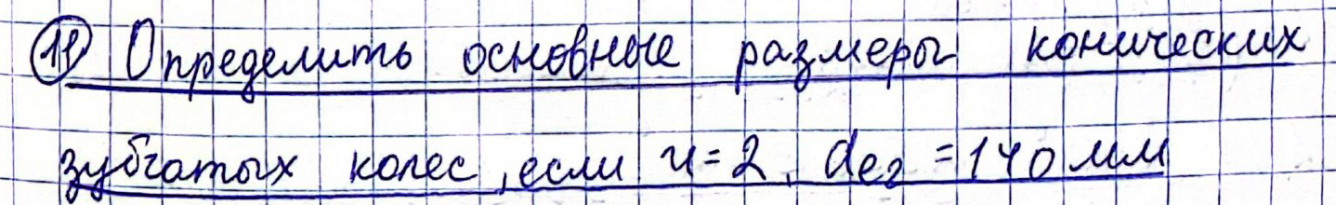 11 Определить основные размеры конических
зубчатых колес, если u=2, de2 =140 мм